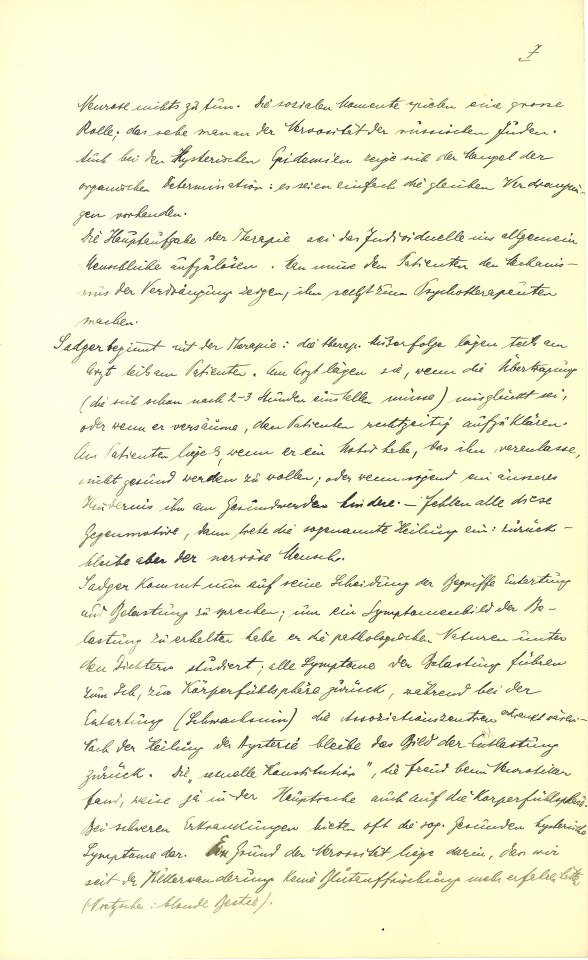 7
Neurose nichts zu tun. Die sozialen Momente spielen eine grosse
Rolle; das sehe man an der Nervosität der russischen Juden.
Auch bei den Hysterischen Epidemien zeige sich der Mangel der
organischen Determination: es seien einfach die gleichen Verdrängun-
gen vorhanden.
Die Hauptaufgabe der Therapie sei das Individuelle ins allgemein
Menschliche aufzulösen. Man müsse dem Patienten den Mechanis-
mus der Verdrängung zeigen, ihn selbst zum Psychotherapeuten
machen.
Sadger beginnt mit der Therapie: die therap. Misserfolge lägen teils am
Arzt teils am Patienten. Am Arzt lägen sie, wenn die Übertragung
(die sich schon nach 2-3 Stunden einstellen müsse) missglückt sei,
oder wenn er versäume, den Patienten rechtzeitig aufzuklären.
Am Patienten liege es, wenn er ein Motiv habe, das ihn veranlasse,
nicht gesund werden zu wollen; oder wenn irgend ein äusseres
Hindernis ihn am Gesundwerden hindere. – Fehlen alle diese
Gegenmotive, dann trete die sogenannte Heilung ein: zurück-
bleibe aber der nervöse Mensch.
Sadger kommt nun auf seine Scheidung der Begriffe Entartung
und Belastung zu sprechen; um ein Symptomenbild der Be-
lastung zu erhalten habe er die pathologischen Naturen unter
den Dichtern studiert; alle Symptome der Belastung führen
zum Ich, zur Körperfühlsphäre zurück, während bei der
Entartung (Schwachsinn) die Assoziationszentren erkrankt wären.
Nach der Heilung der Hysterie bleibe das Bild der Entlastung
zurück. Die „sexuelle Konstitution", die Freud beim Neurotiker
fand, weise ja in der Hauptsache auch auf die Körperfühlsphäre.
Bei schweren Erkrankungen bieten oft die sog. Gesunden hysterische
Symptome dar. Ein Grund der Nervosität liege darin, dass wir
seit der Völkerwanderung keine Blutauffrischung mehr erfahren hätten
(Nietzsche: blonde Bestie).